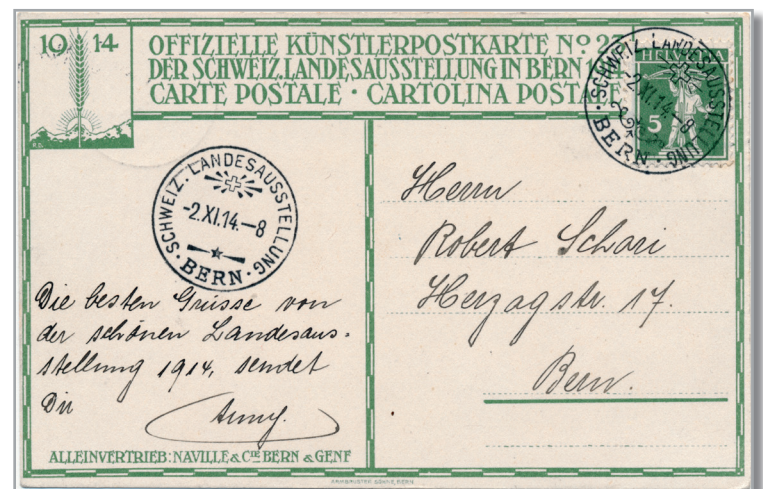 19 14
OFFIZIELLE KÜNSTLERPOSTKARTE Nº 2
DER SCHWEIZ. LANDESAUSSTELLUNG IN BERN 1
CARTE POSTALE · CARTOLINA POSTA
HELVETIA
5
SCHWEIZ. LANDESAUSSTELLUNG
-2.XI.14.-8
BERN
SCHWEIZ. LANDESAUSSTELLUNG
-2.XI.14.-8
· BERN ·
Die besten Grüsse von
der schönen Landesaus-
stellung 1914, sendet
Dir
Anny.
Herrn
Robert Schari
Herzogstr. 17.
Bern.
ALLEINVERTRIEB: NAVILLE & CIE BERN & GENF